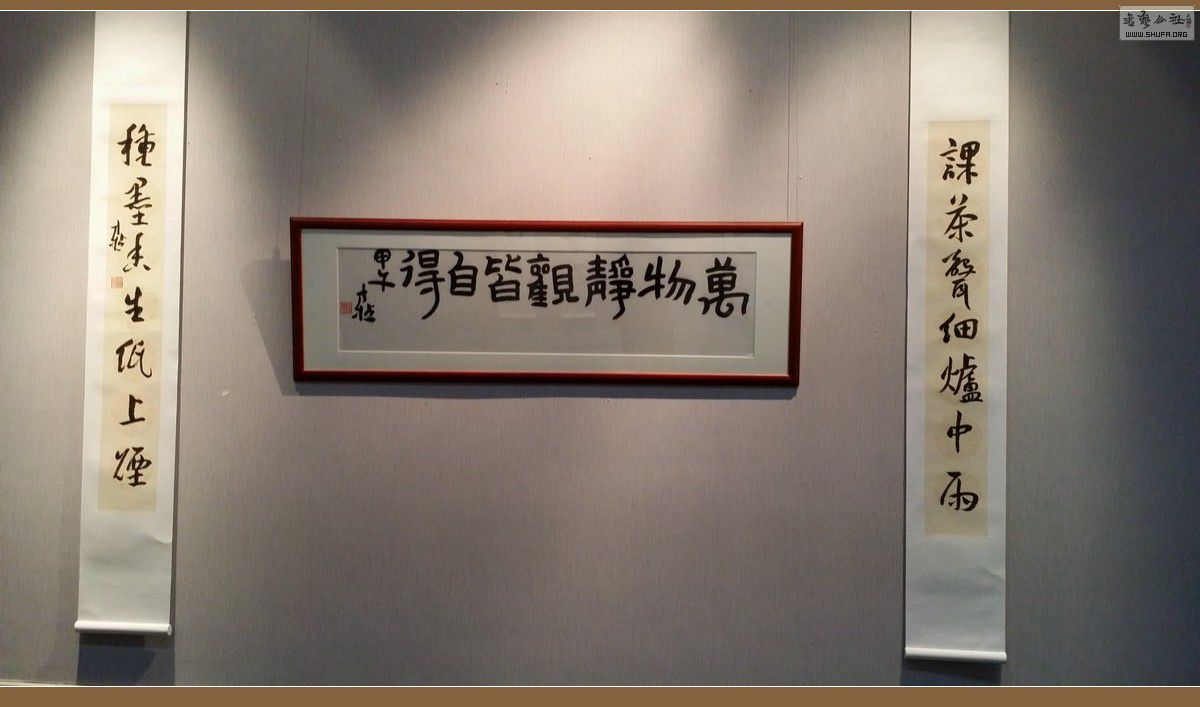 課茶聲細爐中雨
萬物靜觀皆自得
甲午
種墨香生紙上煙
書藝公社
WWW.SHUFA.ORG